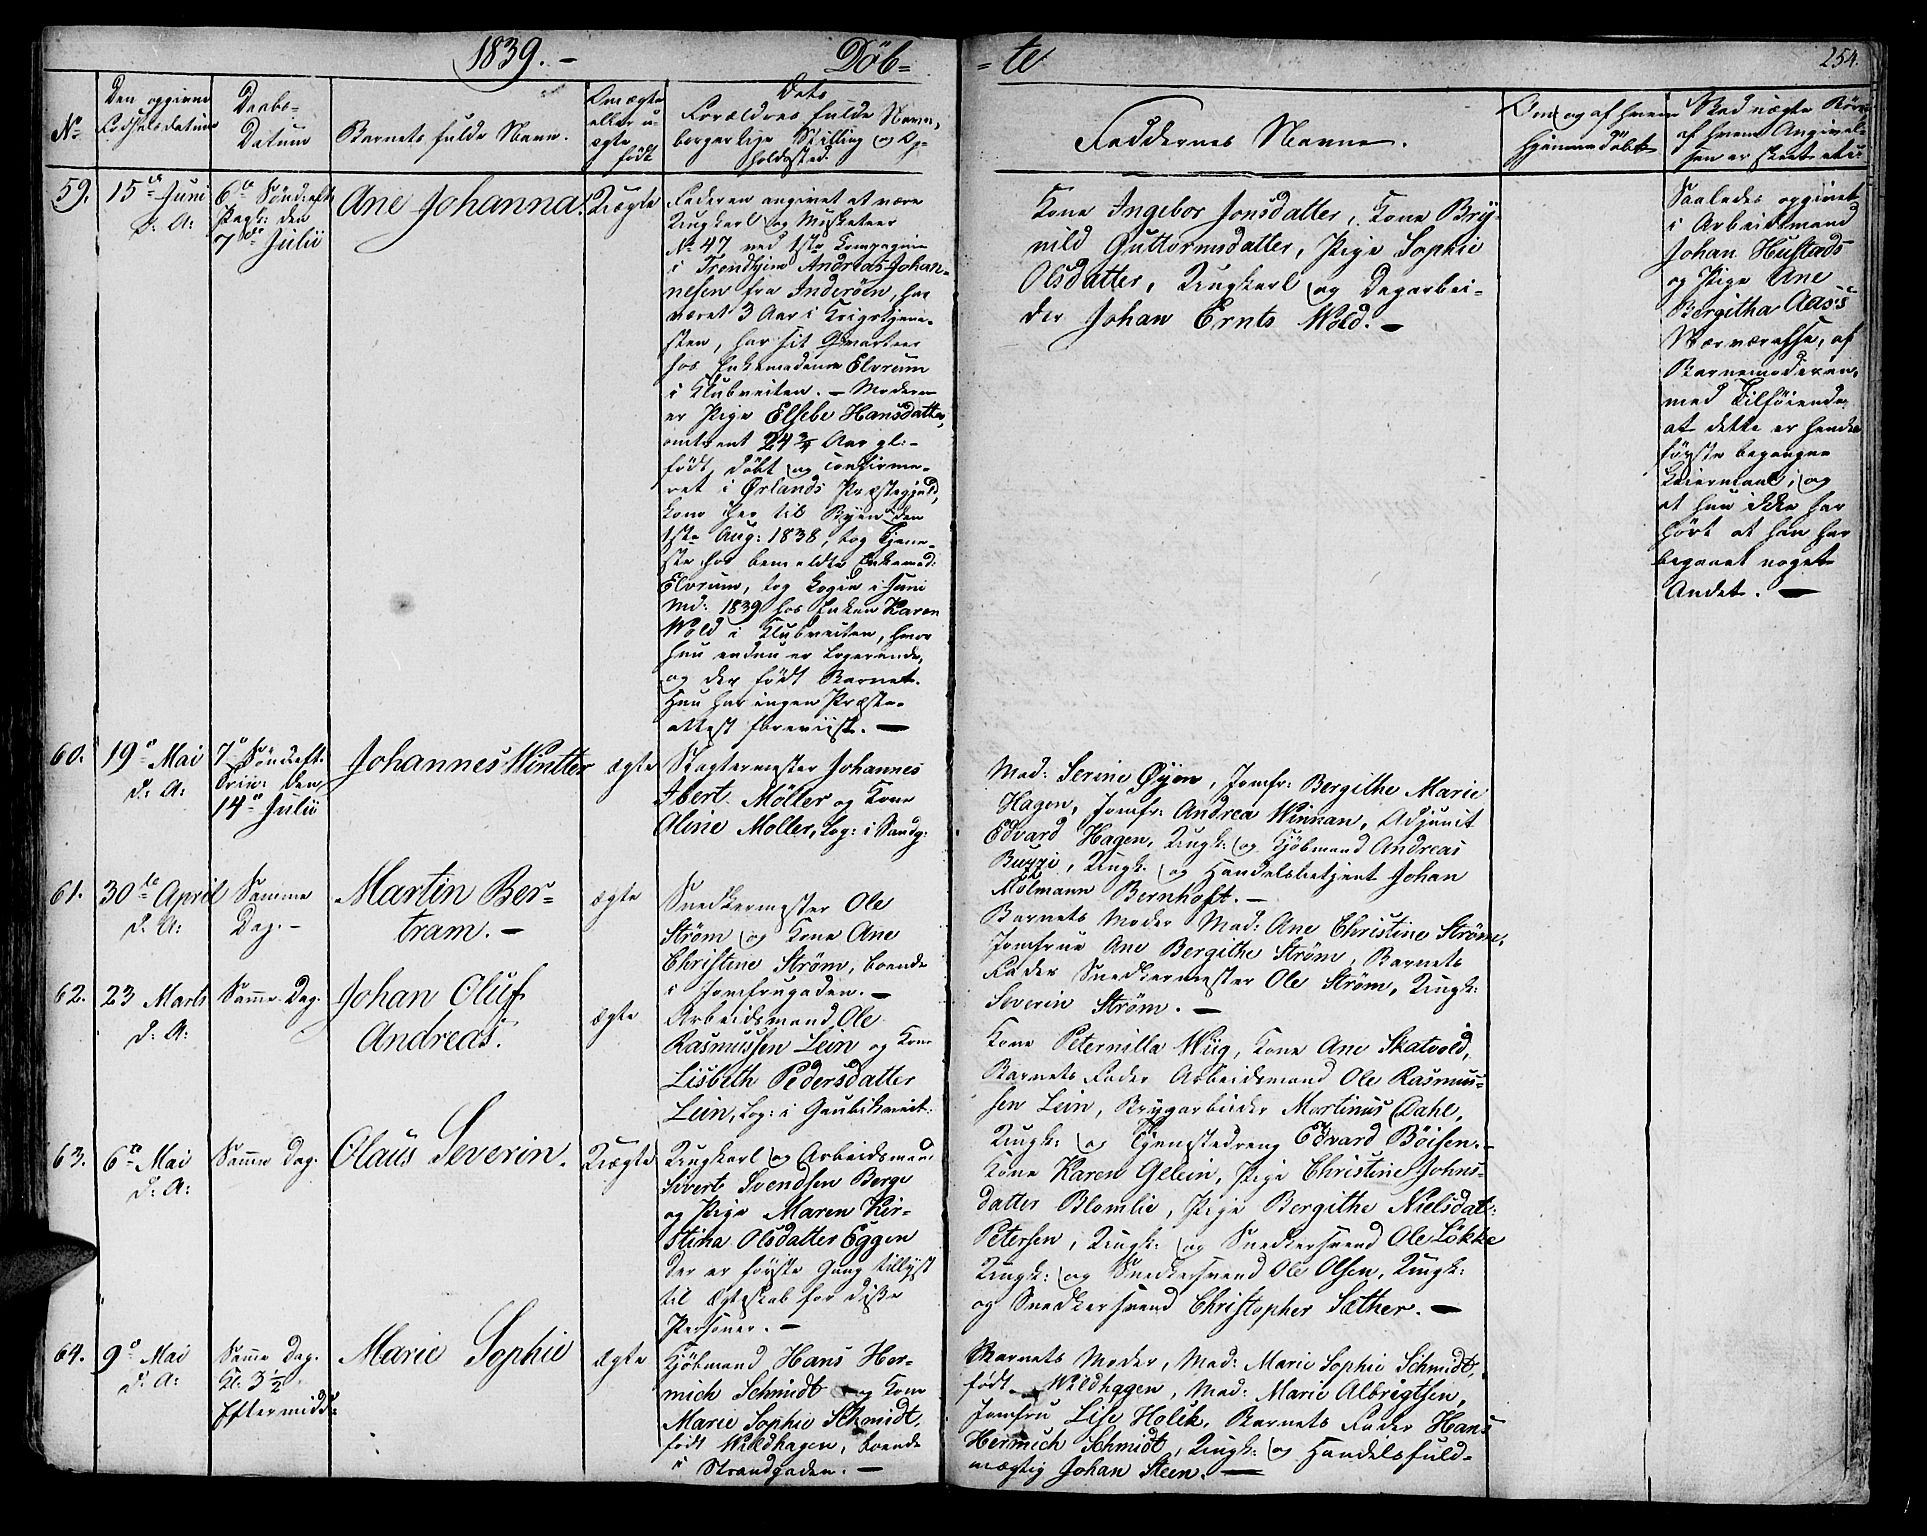 1839. - Döb- -te 254.
No
Den opgivne Fødselsdatum
Daabs-
Datum
Barnets fulde Navn.
Om ægte
eller u-
ægte
født
Dets
Forældres fulde Navn,
borgerlige Stilling og Op-
holdssted.
Faddernes Navne.
Om og af hvem
hjemmedöbt
Ved uægte Børn
af hvem Angivel-
sen er skeet etc:
59.
15de Juni
d: A:
6te Sönd: eft:
den
7de Julii
Ane Johanna.
Uægte
Faderen angivet at være
Ungkarl og Musketeer
No 47 ved 1ste Compagnie
i Trondhjem Andreas Johan-
nesen fra Inderöen, har
været 3 Aar i Krigstjene-
sten, har sit Qvarteer
hos Enkemadame Elvrum
i Klubveiten. - Moderen
er Pige Elsebe Hansdatter,
omtrent 24 3/4 Aar gl: -
född, döbt og confirme-
ret i Ørlands Præstegjeld,
kom her til Byen den
1ste Aug: 1838, tog Tjene-
ste hos bemeldte Enkemad:
Elvrum, tog Logie i Juni
Md: 1839 hos Enken Karen
Wold i Klubveiten, hvor
hun endnu er logerende,
og der född Barnet.
Hun har ingen Præste-
attest foreviist. -
Kone Ingebor Jonsdatter, Kone Bry-
nild Guttormsdatter, Pige Sophie
Olsdatter, Ungkarl og Dagarbei-
der Johan Ernts Wold. -
Saaledes opgivet
i Arbeidsmand
Johan Hustads
og Pige Ane
Bergitha Aas's
Nærværelse, af
Barnemoderen,
med Tilföiende,
at dette er hendes
förste begangne
Leiermaal, og
at hun ikke har
hört at han har
begaaet noget
Andet. -
60.
19de Mai
d: A:
7de Sönd: eft:
Trin: den
14de Julii
Johannes Wintter
ægte
Slagtermester Johannes
Ibert Möller og Kone
Oline Möller, log: i Sandg:
Mad: Serine Øyen, Jomfr: Bergithe Marie
Hagen, Jomfr: Andrea Winnan, Adjunct
Edvard Hagen, Ungk: og Kjöbmand Andreas
Buzzi, Ungk: og Handelsbetjent Johan
Mölmann Bernhoft. -
61.
30te April
d. A:
Samme
Dag. -
Martin Ber-
tram. -
ægte
Snedkermester Ole
Ström og Kone Ane
Christine Ström, boende
i Jomfrugaden. -
Barnets Moder Mad: Ane Christine Ström,
Jomfrue Ane Bergithe Ström, Barnets
Fader Snedkermester Ole Ström, Ungk:
Severin Ström. -
62.
23 Marts
d: A:
Samme Dag.
Johan Oluf
Andreas.
ægte
Arbeidsmand Ole
Rasmussen Lein og Kone
Lisbeth Pedersdatter
Lein, log: i Gaubekveit:
Kone Peternilla Wiig, Kone Ane Skatvold,
Barnets Fader Arbeidsmand Ole Rasmus-
sen Lein, Brygarbeider Martinus Dahl,
Ungk: og Tjenestedreng Edvard Böisen. -
63.
6te Mai
d: A:
Samme Dag.
Olaus Severin.
Uægte
Ungkarl og Arbeidsmand
Sivert Svendsen Berge
og Pige Maren Kir-
stina Olsdatter Eggen
Der er förste Gang tillyst
til Ægteskab for disse
Personer. -
Kone Karen Gelein, Pige Christine Johns-
datter Blomlie, Pige Bergithe Nielsdat:
Petersen, Ungk: og Snedkersvend Ole Lökke
Ungk: og Snedkersvend Ole Olsen, Ungk:
og Snedkersvend Christopher Sæther. -
64.
9de Mai
d: A:
Samme Dag.
Kl: 3 1/2
Eftermidd:
Marie Sophie
ægte
Kjöbmand Hans Her-
mich Schmidt og Kone
Marie Sophie Schmidt,
född Wildhagen, boende
i Strandgaden. -
Barnets Moder, Mad: Marie Sophie Schmidt,
född Wildhagen, Mad: Marie Albrigtsen,
Jomfru Lise Holck, Barnets Fader Hans
Hermich Schmidt, Ungk: og Handelsfuld-
mægtig Johan Steen. -